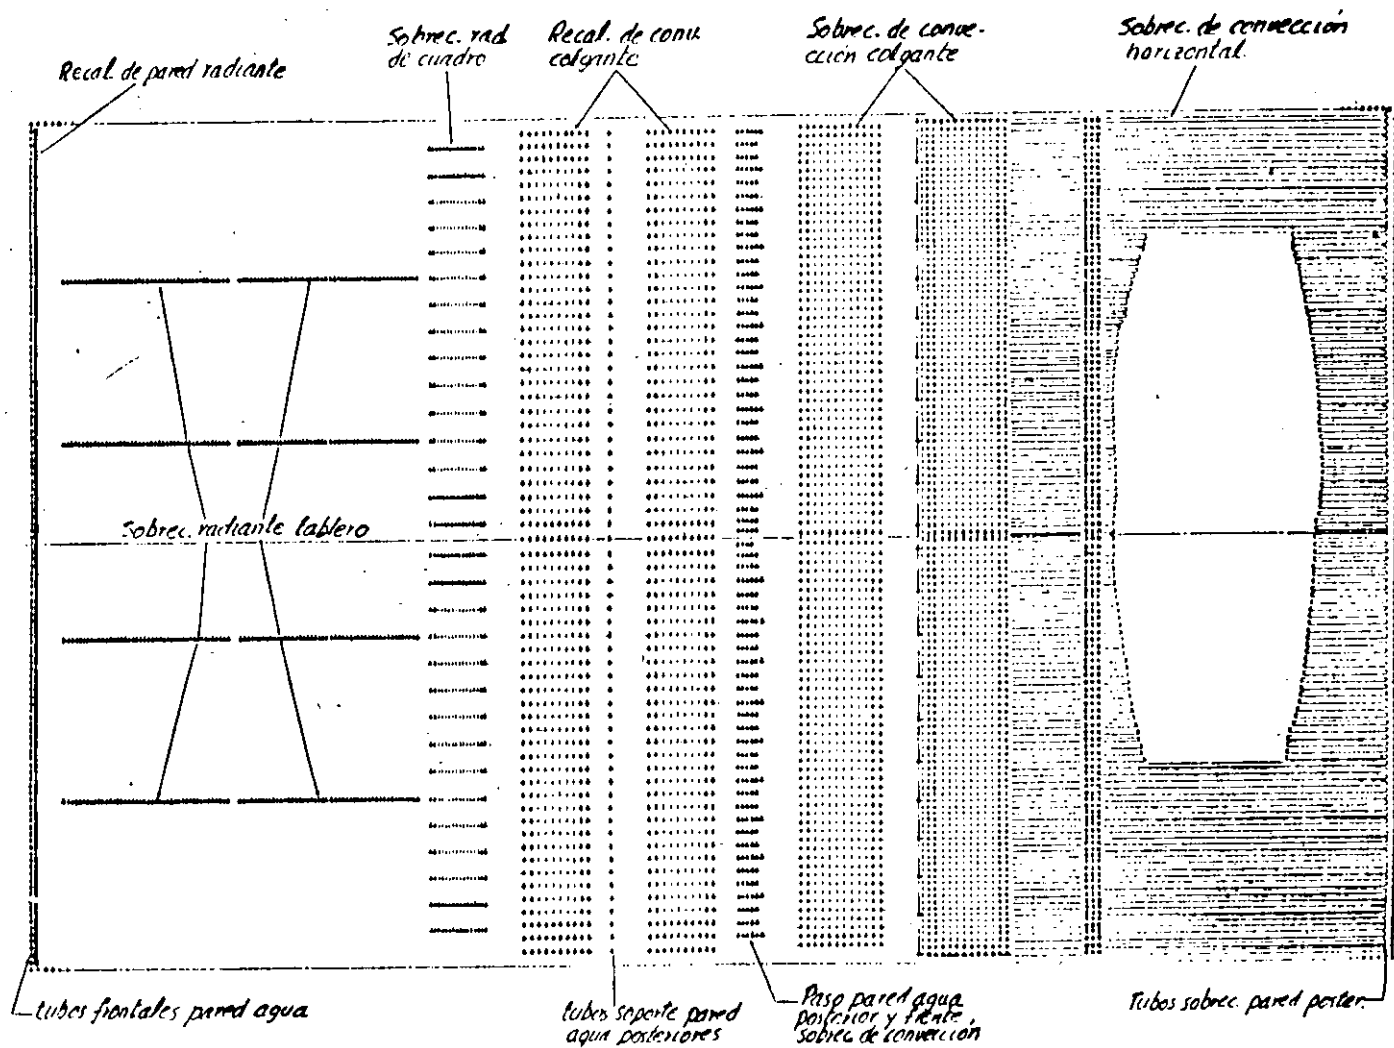 Recal. de pared radiante
Sobrec. rad
de cuadro
Recal. de conv.
colgante
Sobrec. de conve-
cción colgante
Sobrec. de convección
horizontal.
Sobrec. radiante tablero
tubos frontales pared agua
tubos soporte pared
agua posteriores
Paso pared agua
posterior y frente,
sobrec de convección
Tubos sobrec. pared poster.